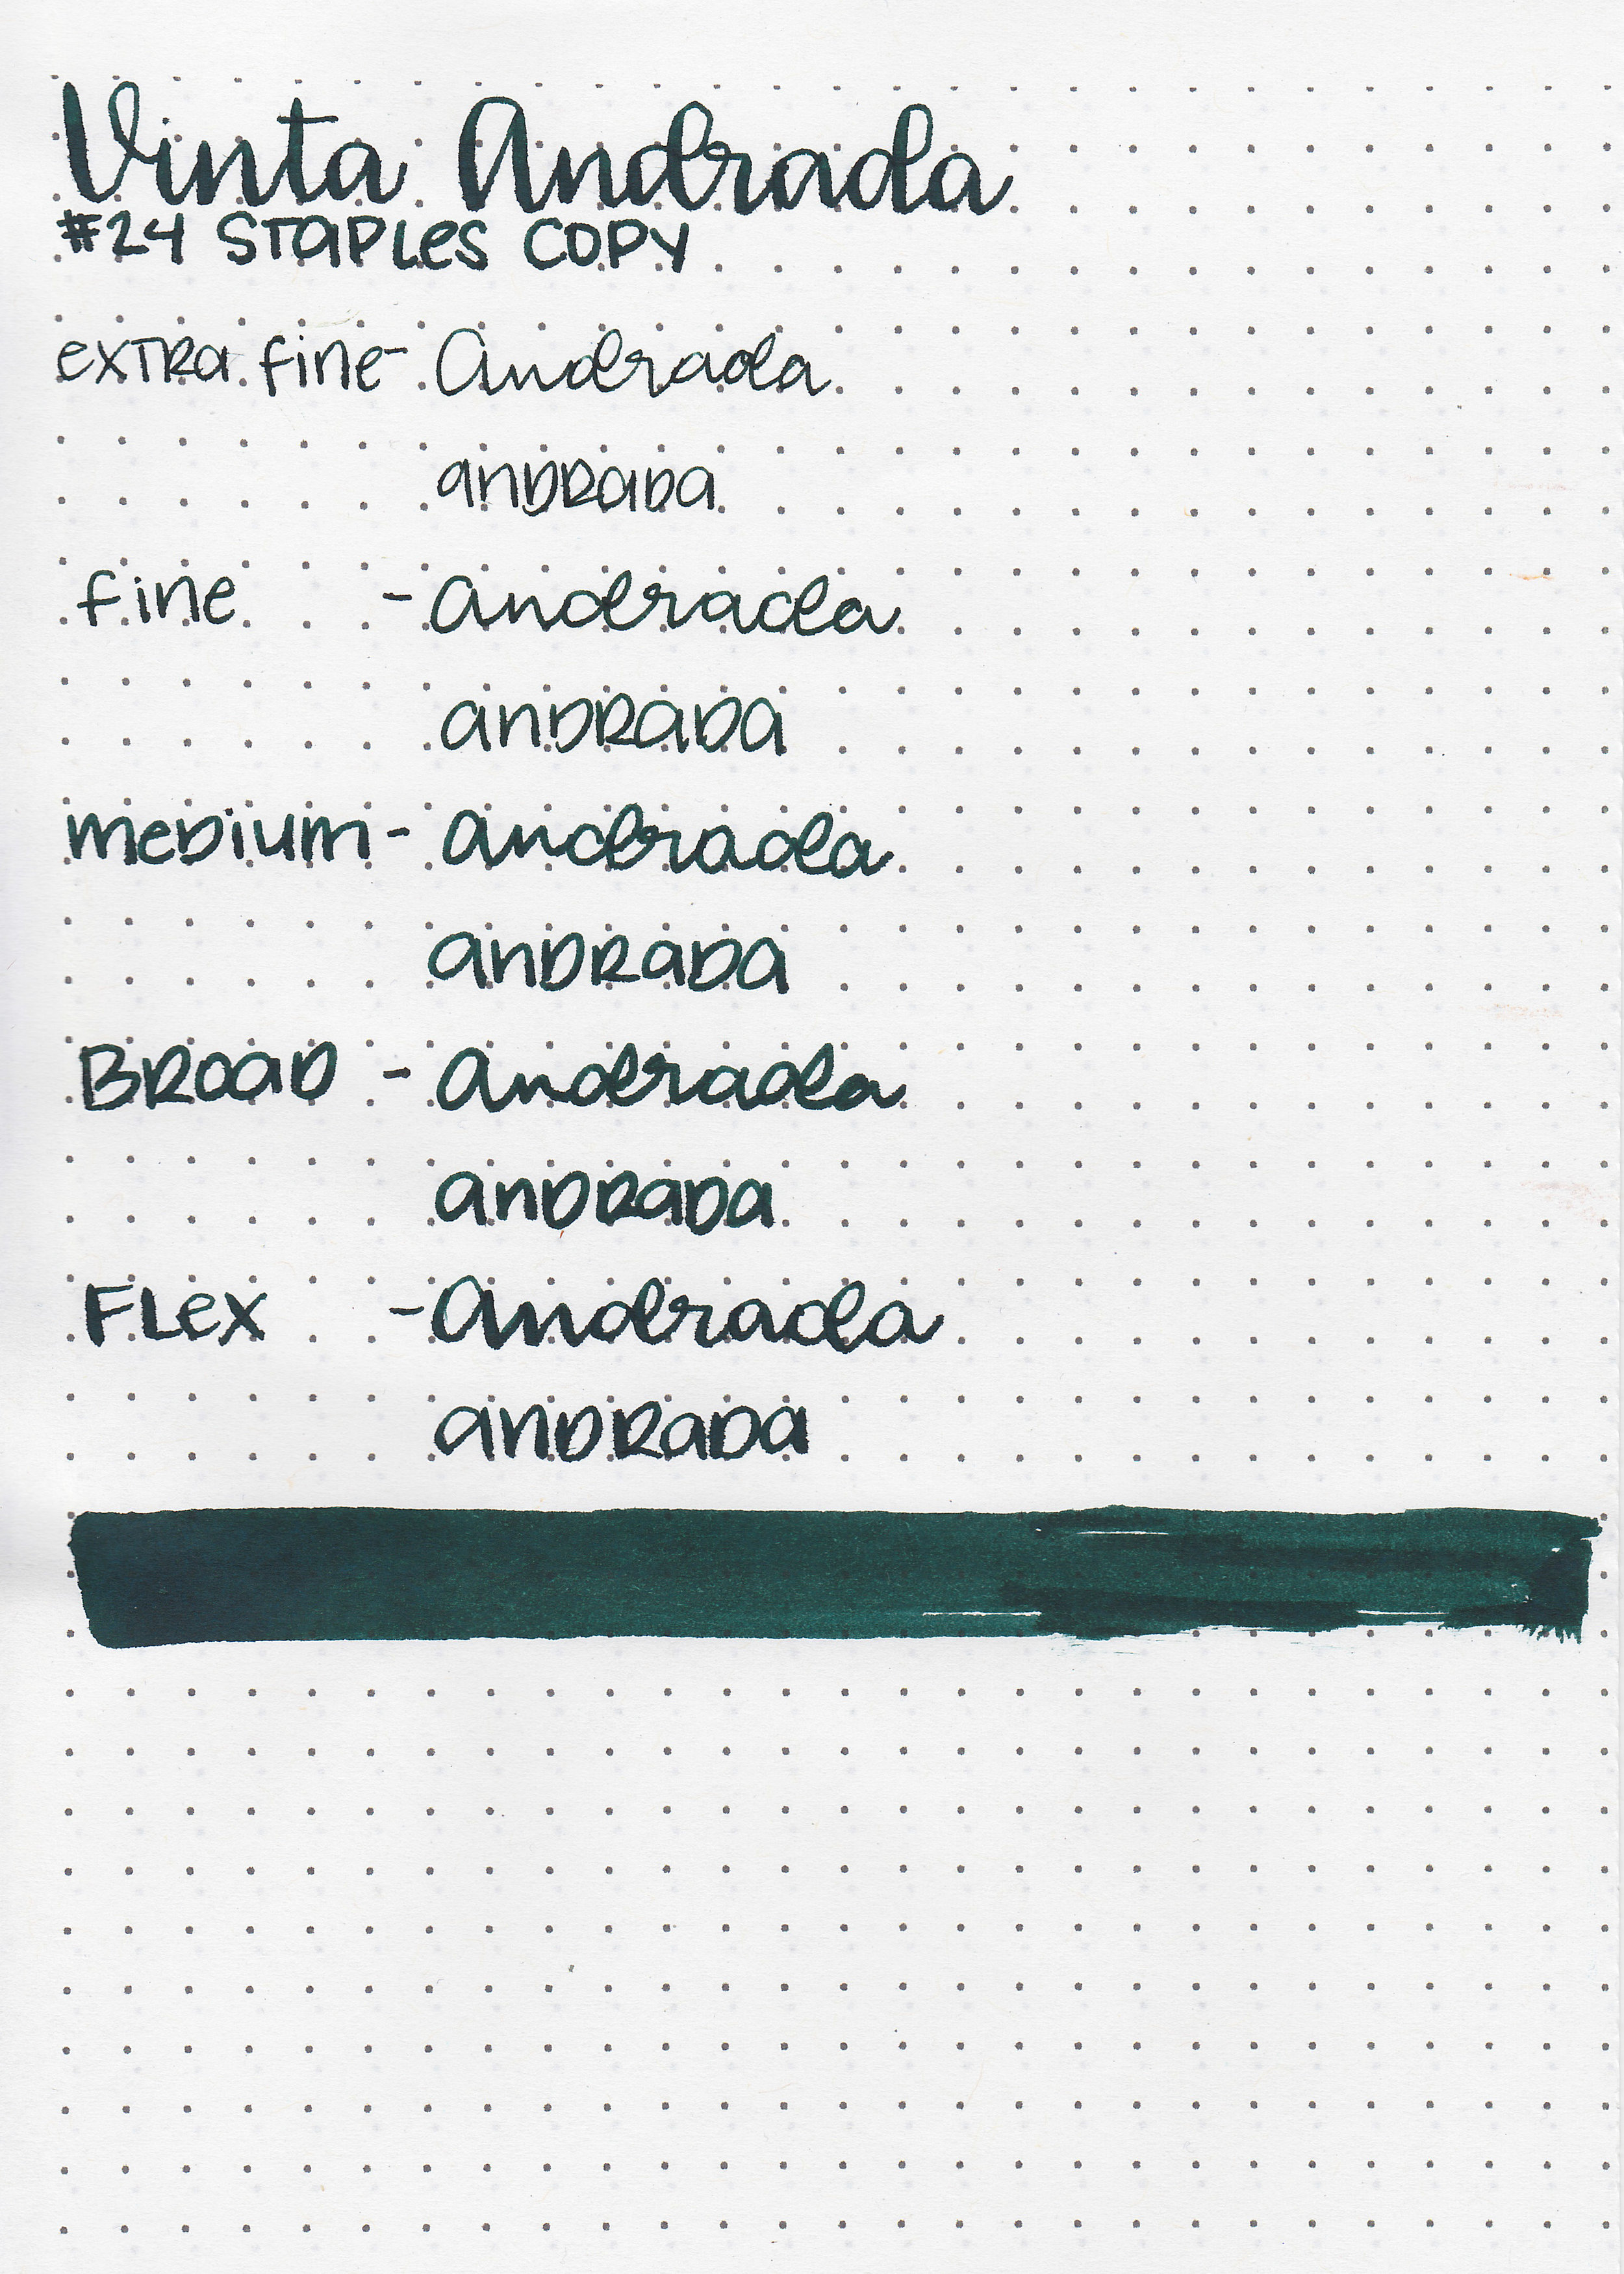 Vinta Andrada
#24 STAPLES COPY
extra fine - Andrada
andrada
fine - Andrada
andrada
medium - Andrada
andrada
Broad - Andrada
andrada
Flex - Andrada
andrada